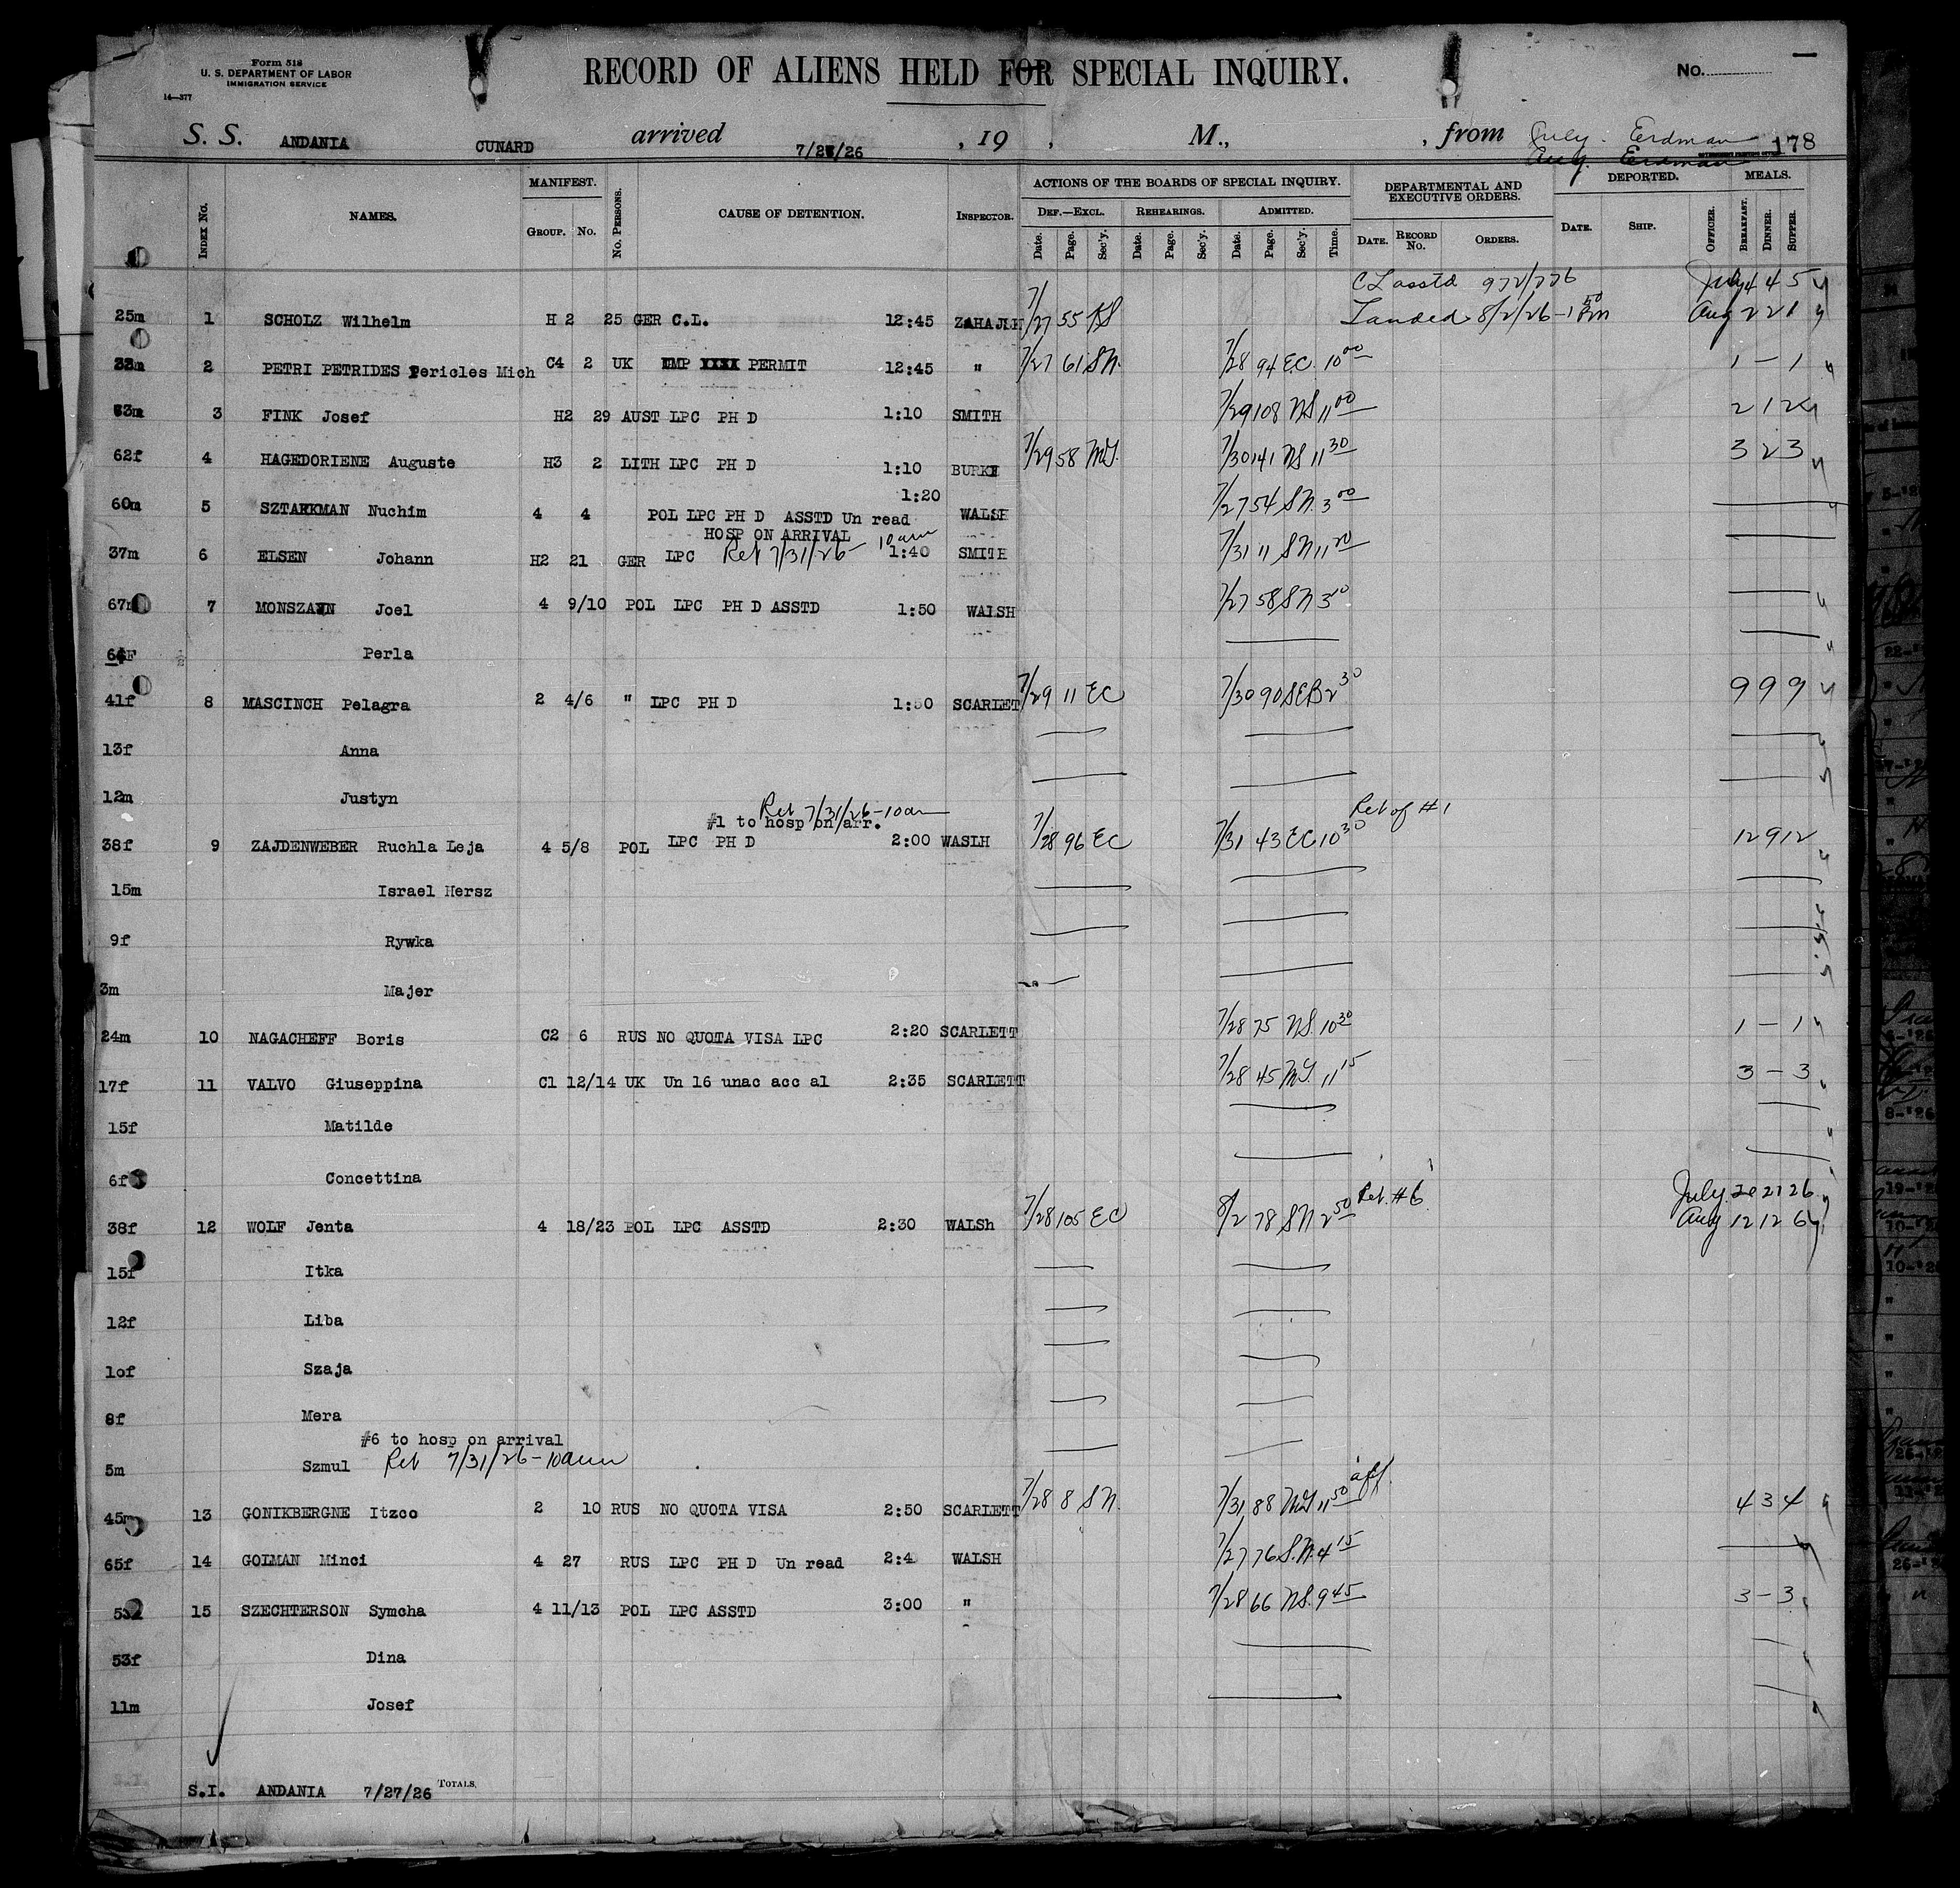 Form 518
U. S. DEPARTMENT OF LABOR
IMMIGRATION SERVICE
14—377
RECORD OF ALIENS HELD FOR SPECIAL INQUIRY.
No.
S. S. ANDANIA CUNARD arrived 7/27/26, 19 , M., , from July. Erdman
Aug. Erdman 178
INDEX No. NAMES. MANIFEST. GROUP. No. No. PERSONS. CAUSE OF DETENTION. INSPECTOR. ACTIONS OF THE BOARDS OF SPECIAL INQUIRY. DEF.—EXCL. Date. Page. Sec'y. REHEARINGS. Date. Page. Sec'y. ADMITTED. Date. Page. Sec'y. Time. DEPARTMENTAL AND EXECUTIVE ORDERS. DATE. RECORD No. ORDERS. DEPORTED. DATE. SHIP. OFFICER. MEALS. BREAKFAST. DINNER. SUPPER.
CL asstd 972/776 July 4 4 5
25m 1 SCHOLZ Wilhelm H 2 25 GER C.L. 12:45 7/27 55 KS Landed 8/2/26-1 50 Pm Aug 2 2 1
2 PETRI PETRIDES Pericles Mich C4 2 UK PERMIT 12:45 " 7/27 61 SN. 7/28 94 EC. 10 00 1 – 1
3 FINK Josef H2 29 AUST LPC PH D 1:10 SMITH 7/29 108 NS 11 00 2 1 2
62f 4 HAGEDORIENE Auguste H3 2 LITH LPC PH D 1:10 BURKE 7/29 58 MG. 7/30 141 NS 11 30 3 2 3
1:20
60m 5 SZTARKMAN Nuchim 4 4 POL LPC PH D ASSTD Un read WALSH 7/27 54 SN. 3 00
HOSP ON ARRIVAL
37m 6 ELSEN Johann H2 21 GER LPC Ret 7/31/26- 10am 1:40 SMITH 7/31 11 SN 11 20
67m 7 MONSZAJN Joel 4 9/10 POL LPC PH D ASSTD 1:50 WALSH 7/27 58 SN 3 50
Perla
41f 8 MASCINCH Pelagra 2 4/6 " LPC PH D 1:50 SCARLET 7/29 11 EC 7/30 90 SEB 2 30 9 9 9
13f Anna
12m Justyn
Ret 7/31/26-10am
#1 to hosp on arr. Ret of #1
38f 9 ZAJDENWEBER Ruchla Leja 4 5/8 POL LPC PH D 2:00 WASLH 7/28 96 EC 7/31 43 EC 10 30 12 9 12
15m Israel Hersz
9f Rywka
3m Majer
24m 10 NAGACHEFF Boris C2 6 RUS NO QUOTA VISA LPC 2:20 SCARLETT 7/28 75 NS. 10 30 1 – 1
17f 11 VALVO Giuseppina C1 12/14 UK Un 16 unac acc al 2:35 SCARLETT 7/28 45 MG. 11 15 3 – 3
15f Matilde
6f Concettina
Ret. #6 July 20 21 26
38f 12 WOLF Jenta 4 18/23 POL LPC ASSTD 2:30 WALSh 7/28 105 EC 8/2 78 SN 2 50 Aug 12 12 6
15f Itka
12f Liba
1of Szaja
8f Mera
#6 to hosp on arrival
5m Szmul Ret 7/31/26-10am
45m 13 GONIKBERGNE Itzco 2 10 RUS NO QUOTA VISA 2:50 SCARLETT 7/28 8 SN. 7/31 88 MG 11 50 aff. 4 3 4
65f 14 GOLMAN Minci 4 27 RUS LPC PH D Un read 2:4 WALSH 7/27 76 S.N. 4 15
15 SZECHTERSON Symcha 4 11/13 POL LPC ASSTD 3:00 " 7/28 66 NS. 9 45 3 – 3
53f Dina
11m Josef
S.I. ANDANIA 7/27/26 TOTALS.